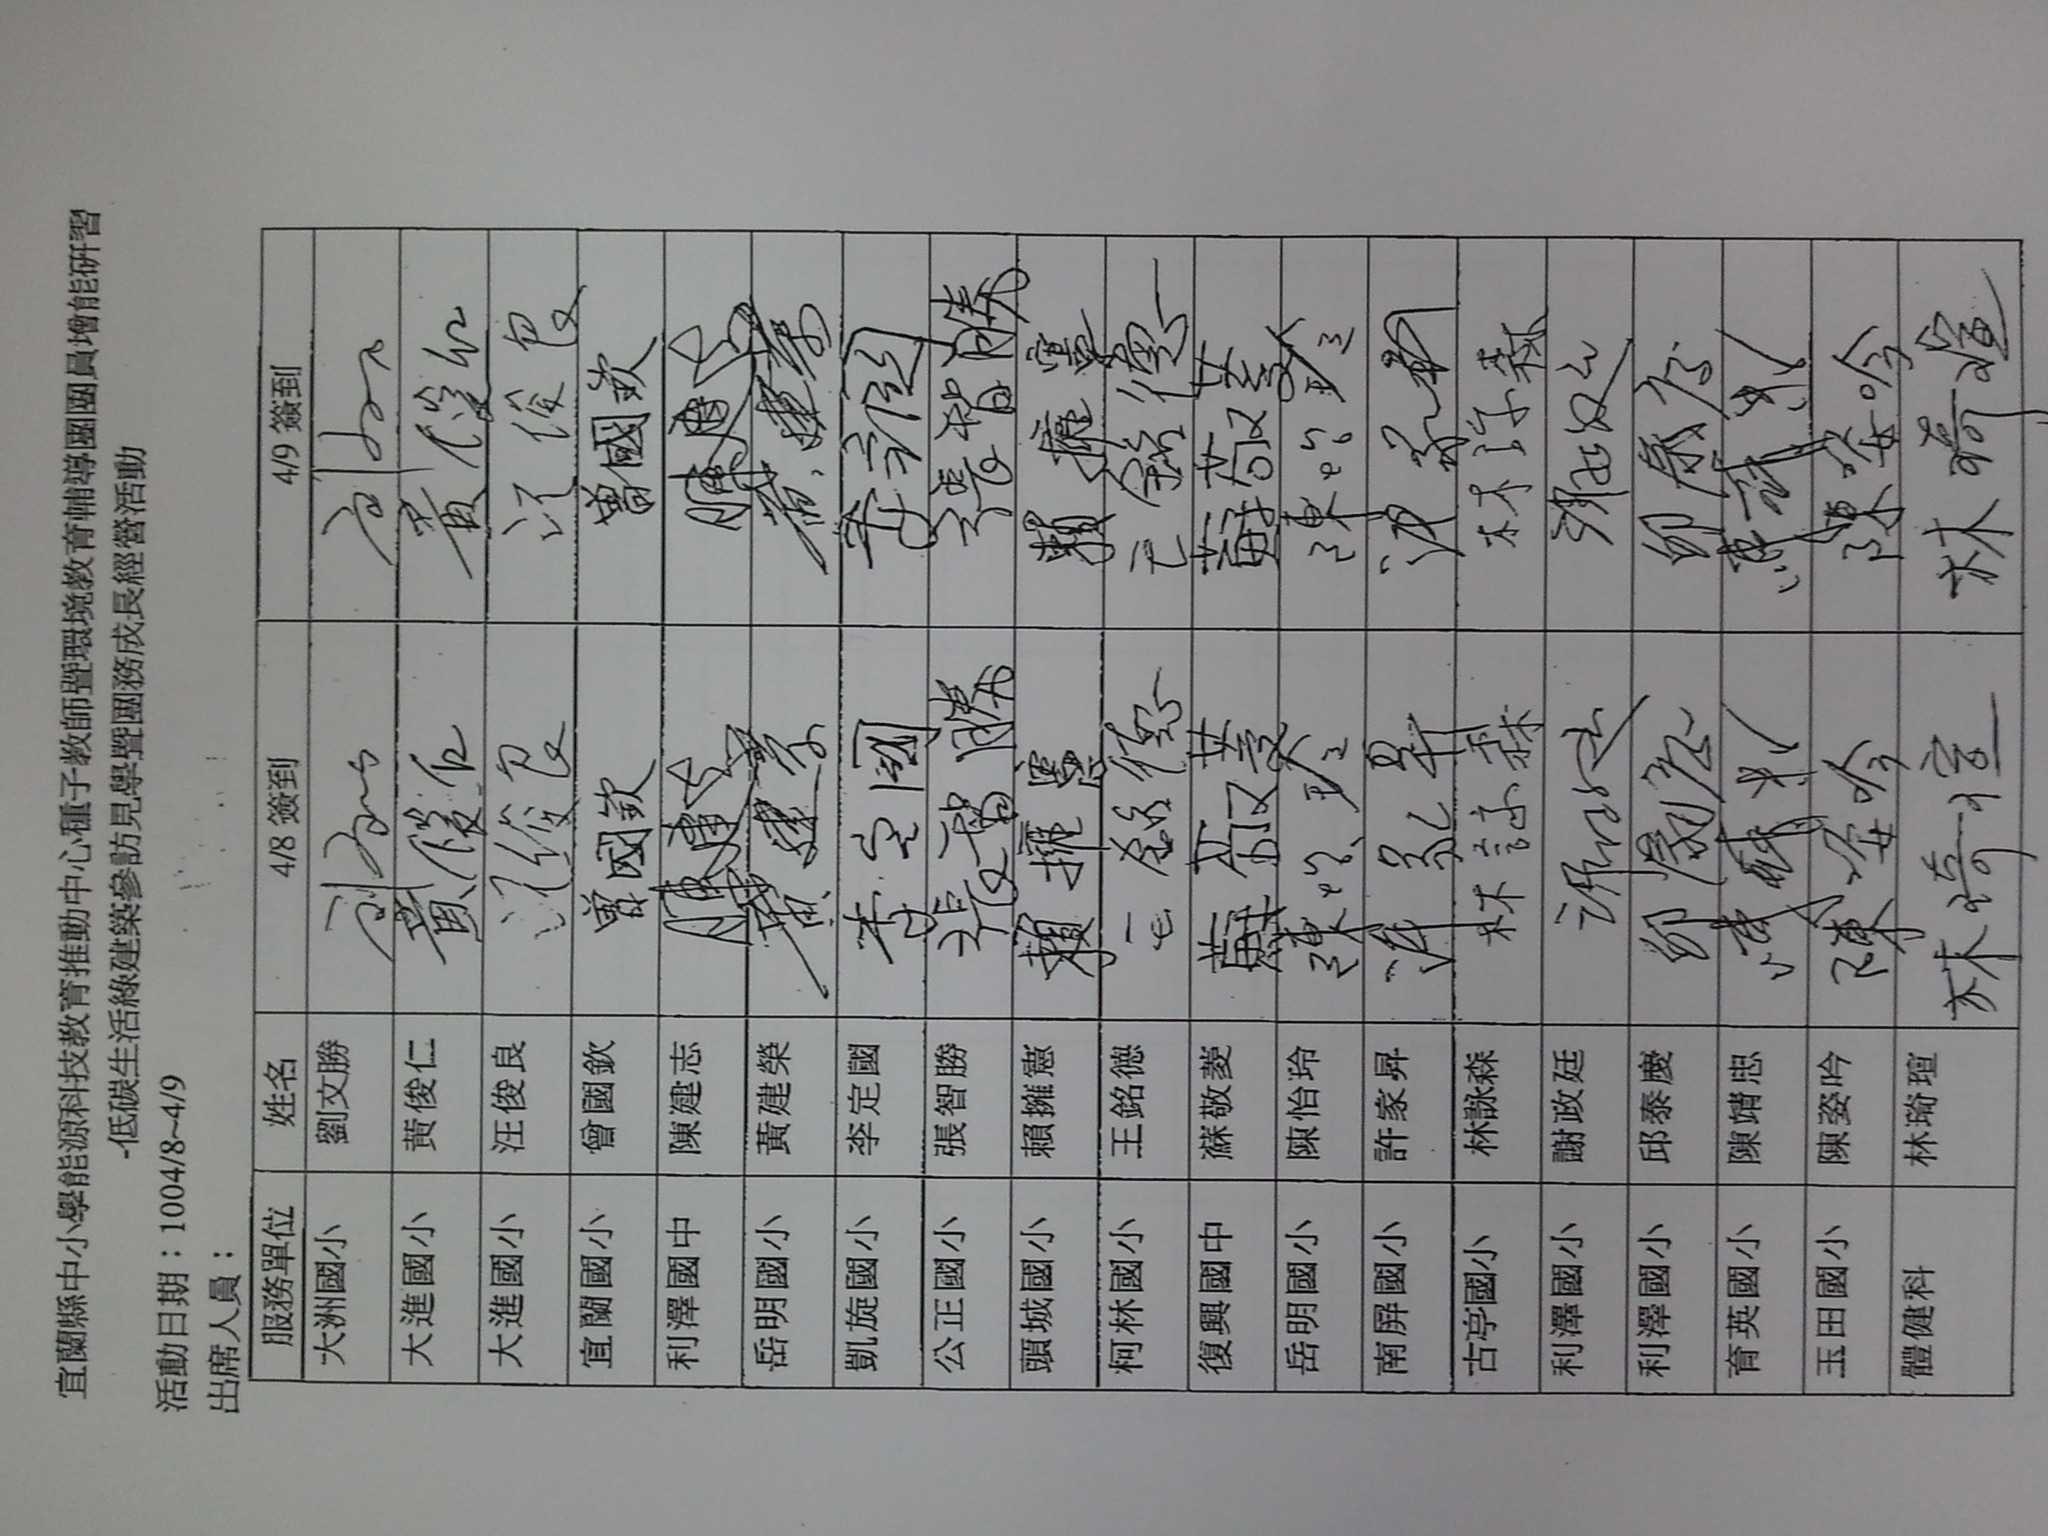 宜蘭縣中小學能源科技教育推動中心種子教師暨環境教育輔導團團員增能研習
-低碳生活綠建築參訪見學暨團務成長經營活動
活動日期：1004/8~4/9
出席人員：
服務單位 姓名 4/8 簽到 4/9 簽到
大洲國小 劉文勝
大進國小 黃俊仁 黃俊仁 黃俊仁
大進國小 汪俊良 汪俊良 汪俊良
宜蘭國小 曾國欽 曾國欽 曾國欽
利澤國中 陳建志 陳建志 陳建志
岳明國小 黃建榮 黃建榮 黃建榮
凱旋國小 李定國 李定國 李定國
公正國小 張智勝 張智勝 張智勝
頭城國小 賴擁憲 賴擁憲 賴擁憲
柯林國小 王銘德 王銘德 王銘德
復興國中 蘇敬菱 蘇敬菱 蘇敬菱
岳明國小 陳怡玲 陳怡玲 陳怡玲
南屏國小 許家昇 許家昇 許家昇
古亭國小 林詠森 林詠森 林詠森
利澤國小 謝政廷
利澤國小 邱泰慶
育英國小 陳靖忠
玉田國小 陳姿吟 陳姿吟 陳姿吟
體健科 林琦瑄 林琦瑄 林琦瑄